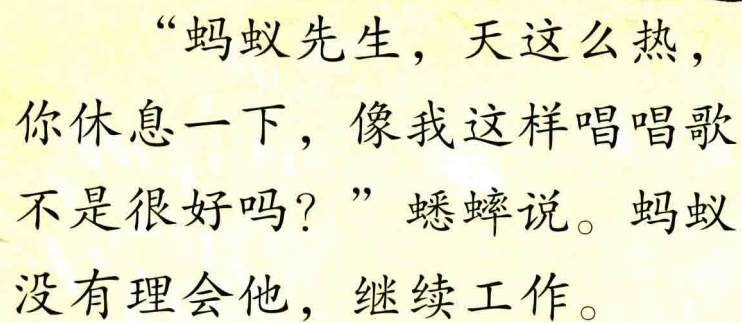 “蚂蚁先生，天这么热，
你休息一下，像我这样唱唱歌
不是很好吗？”蟋蟀说。蚂蚁
没有理会他，继续工作。